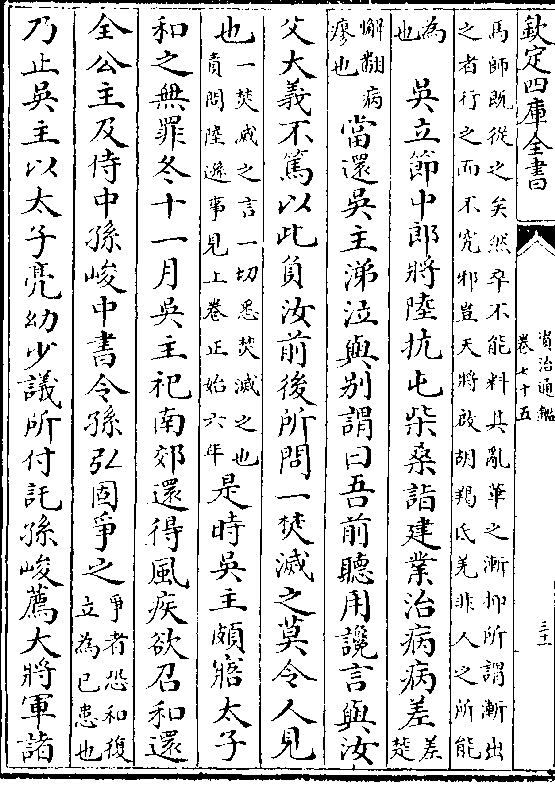 欽定四庫全書
資治通鑑
卷七十五
三十一
馬師既從之矣然卒不能料其亂華之漸抑所謂漸出
之者行之而不究邪豈天將啟胡羯氐羌非人之所能
為也吳立節中郎將陸抗屯柴桑詣建業治病病差差楚
懈翻病瘳也當還吳主涕泣與别謂曰吾前聽用讒言與汝
父大義不篤以此負汝前後所問一焚滅之莫令人見
也一焚滅之言一切悉焚滅之也責問陸遜事見上卷正始六年是時吳主頗寤太子
和之無罪冬十一月吳主祀南郊還得風疾欲召和還
全公主及侍中孫峻中書令孫弘固爭之爭者恐和復立為已患也
乃止吳主以太子亮幼少議所付託孫峻薦大將軍諸